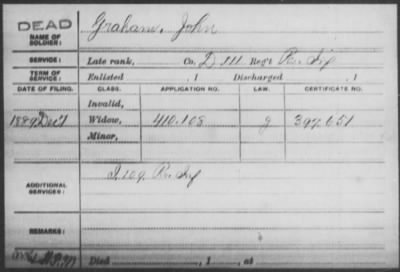 DEAD
NAME OF SOLDIER: Graham, John
SERVICE: Late rank, Co. D 111 Reg't Pa. Inf
TERM OF SERVICE: Enlisted , 1 Discharged , 1
DATE OF FILING. CLASS. APPLICATION NO. LAW. CERTIFICATE NO.
Invalid,
1889 Dec 7 Widow, 410.108 g 397.651
Minor,
ADDITIONAL SERVICES: D. 109. Pa. Inf
REMARKS:
Died , 1 , at